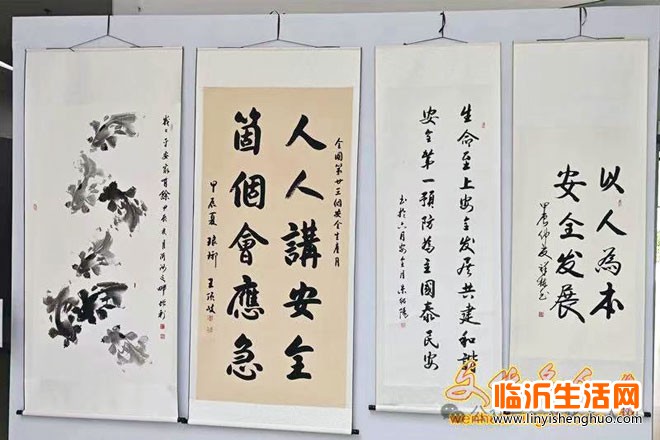 全國第廿三個安全生產月
人人講安全
箇個會應急
甲辰夏 琅琊
生命至上安全發展共建和諧
安全第一預防為主國泰民安
以人為本
安全發展
甲辰仲夏
临沂生活网
www.linyishenghuo.com